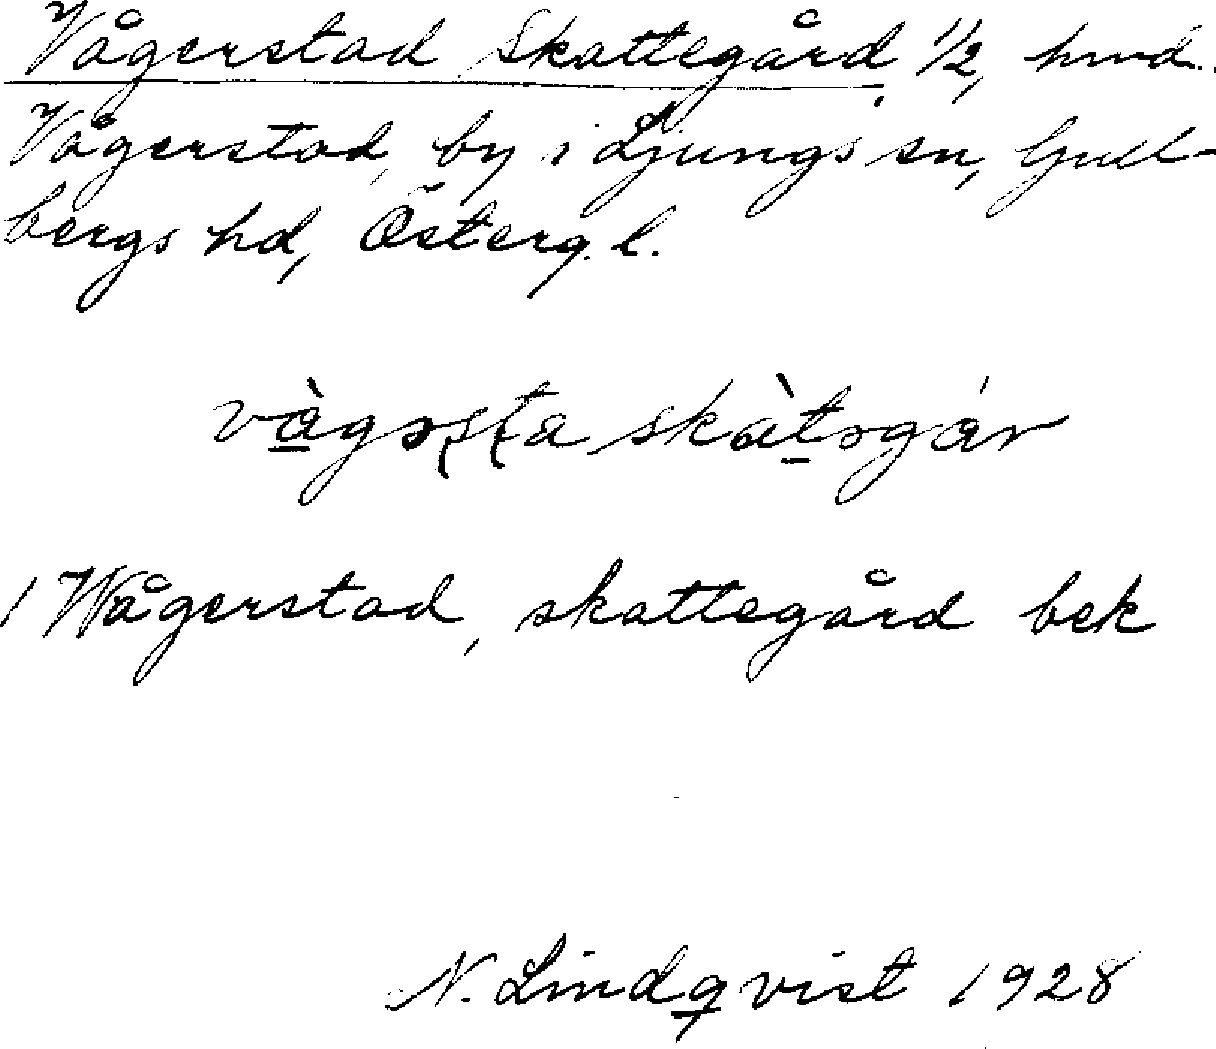 Vågerstad Skattegård, 1/2, hmd.
Vågerstad, by i Ljungs sn, Gull-
bergs hd, Österg. l.
vàgəsta skàtəgár
1 Wågerstad, skattegård bek
N. Lindqvist 1928